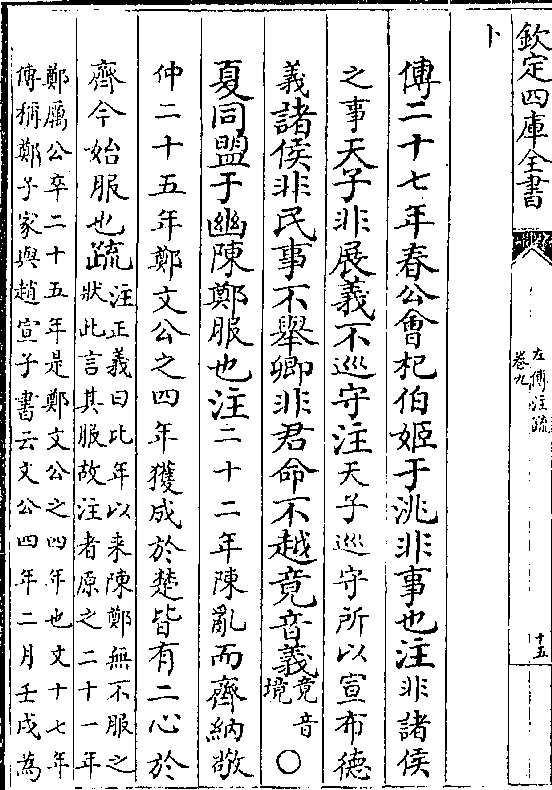 欽定四庫全書
左傳注疏
卷九
十五
卜
傳二十七年春公會杞伯姬于洮非事也注非諸侯
之事天子非展義不巡守注天子巡守所以宣布德
義諸侯非民事不舉卿非君命不越竟音義竟音
境〇
夏同盟于幽陳鄭服也注二十二年陳亂而齊納敬
仲二十五年鄭文公之四年獲成於楚皆有二心於
齊今始服也疏注正義曰比年以来陳鄭無不服之
狀此言其服故注者原之二十一年
鄭厲公卒二十五年是鄭文公之四年也文十七年
傳稱鄭子家與趙宣子書云文公四年二月壬戌為